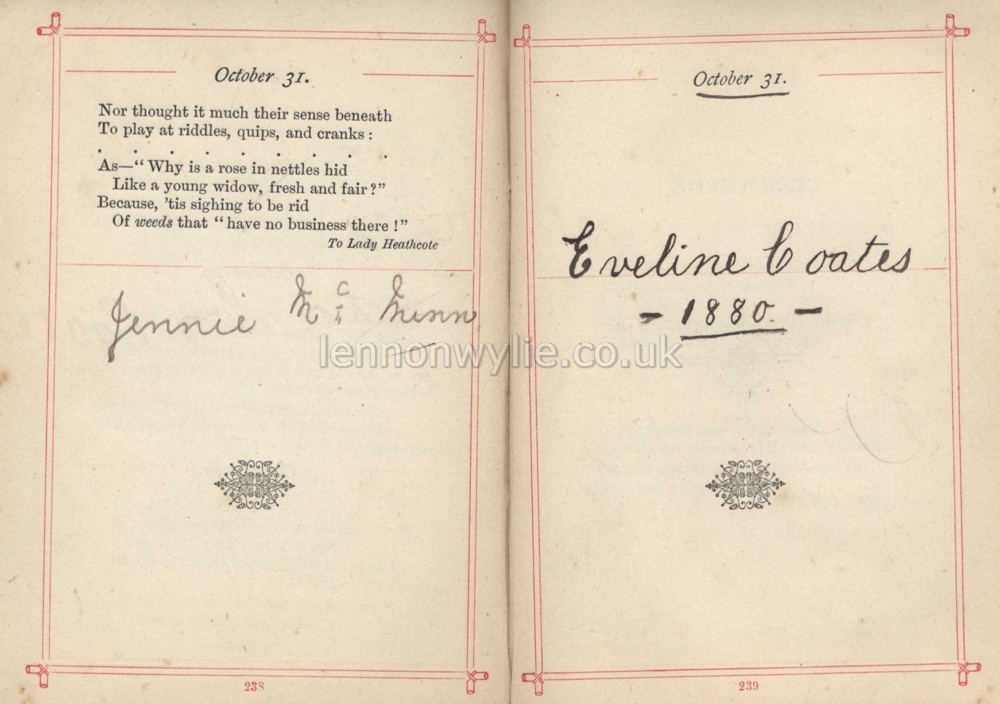 October 31.
Nor thought it much their sense beneath
To play at riddles, quips, and cranks :
. . . . . . . . . .
As—“ Why is a rose in nettles hid
Like a young widow, fresh and fair ?”
Because, ’tis sighing to be rid
Of weeds that “ have no business there !”
To Lady Heathcote
Jennie Mc Minn
238
October 31.
Eveline Coates
- 1880. -
239
lennonwylie.co.uk